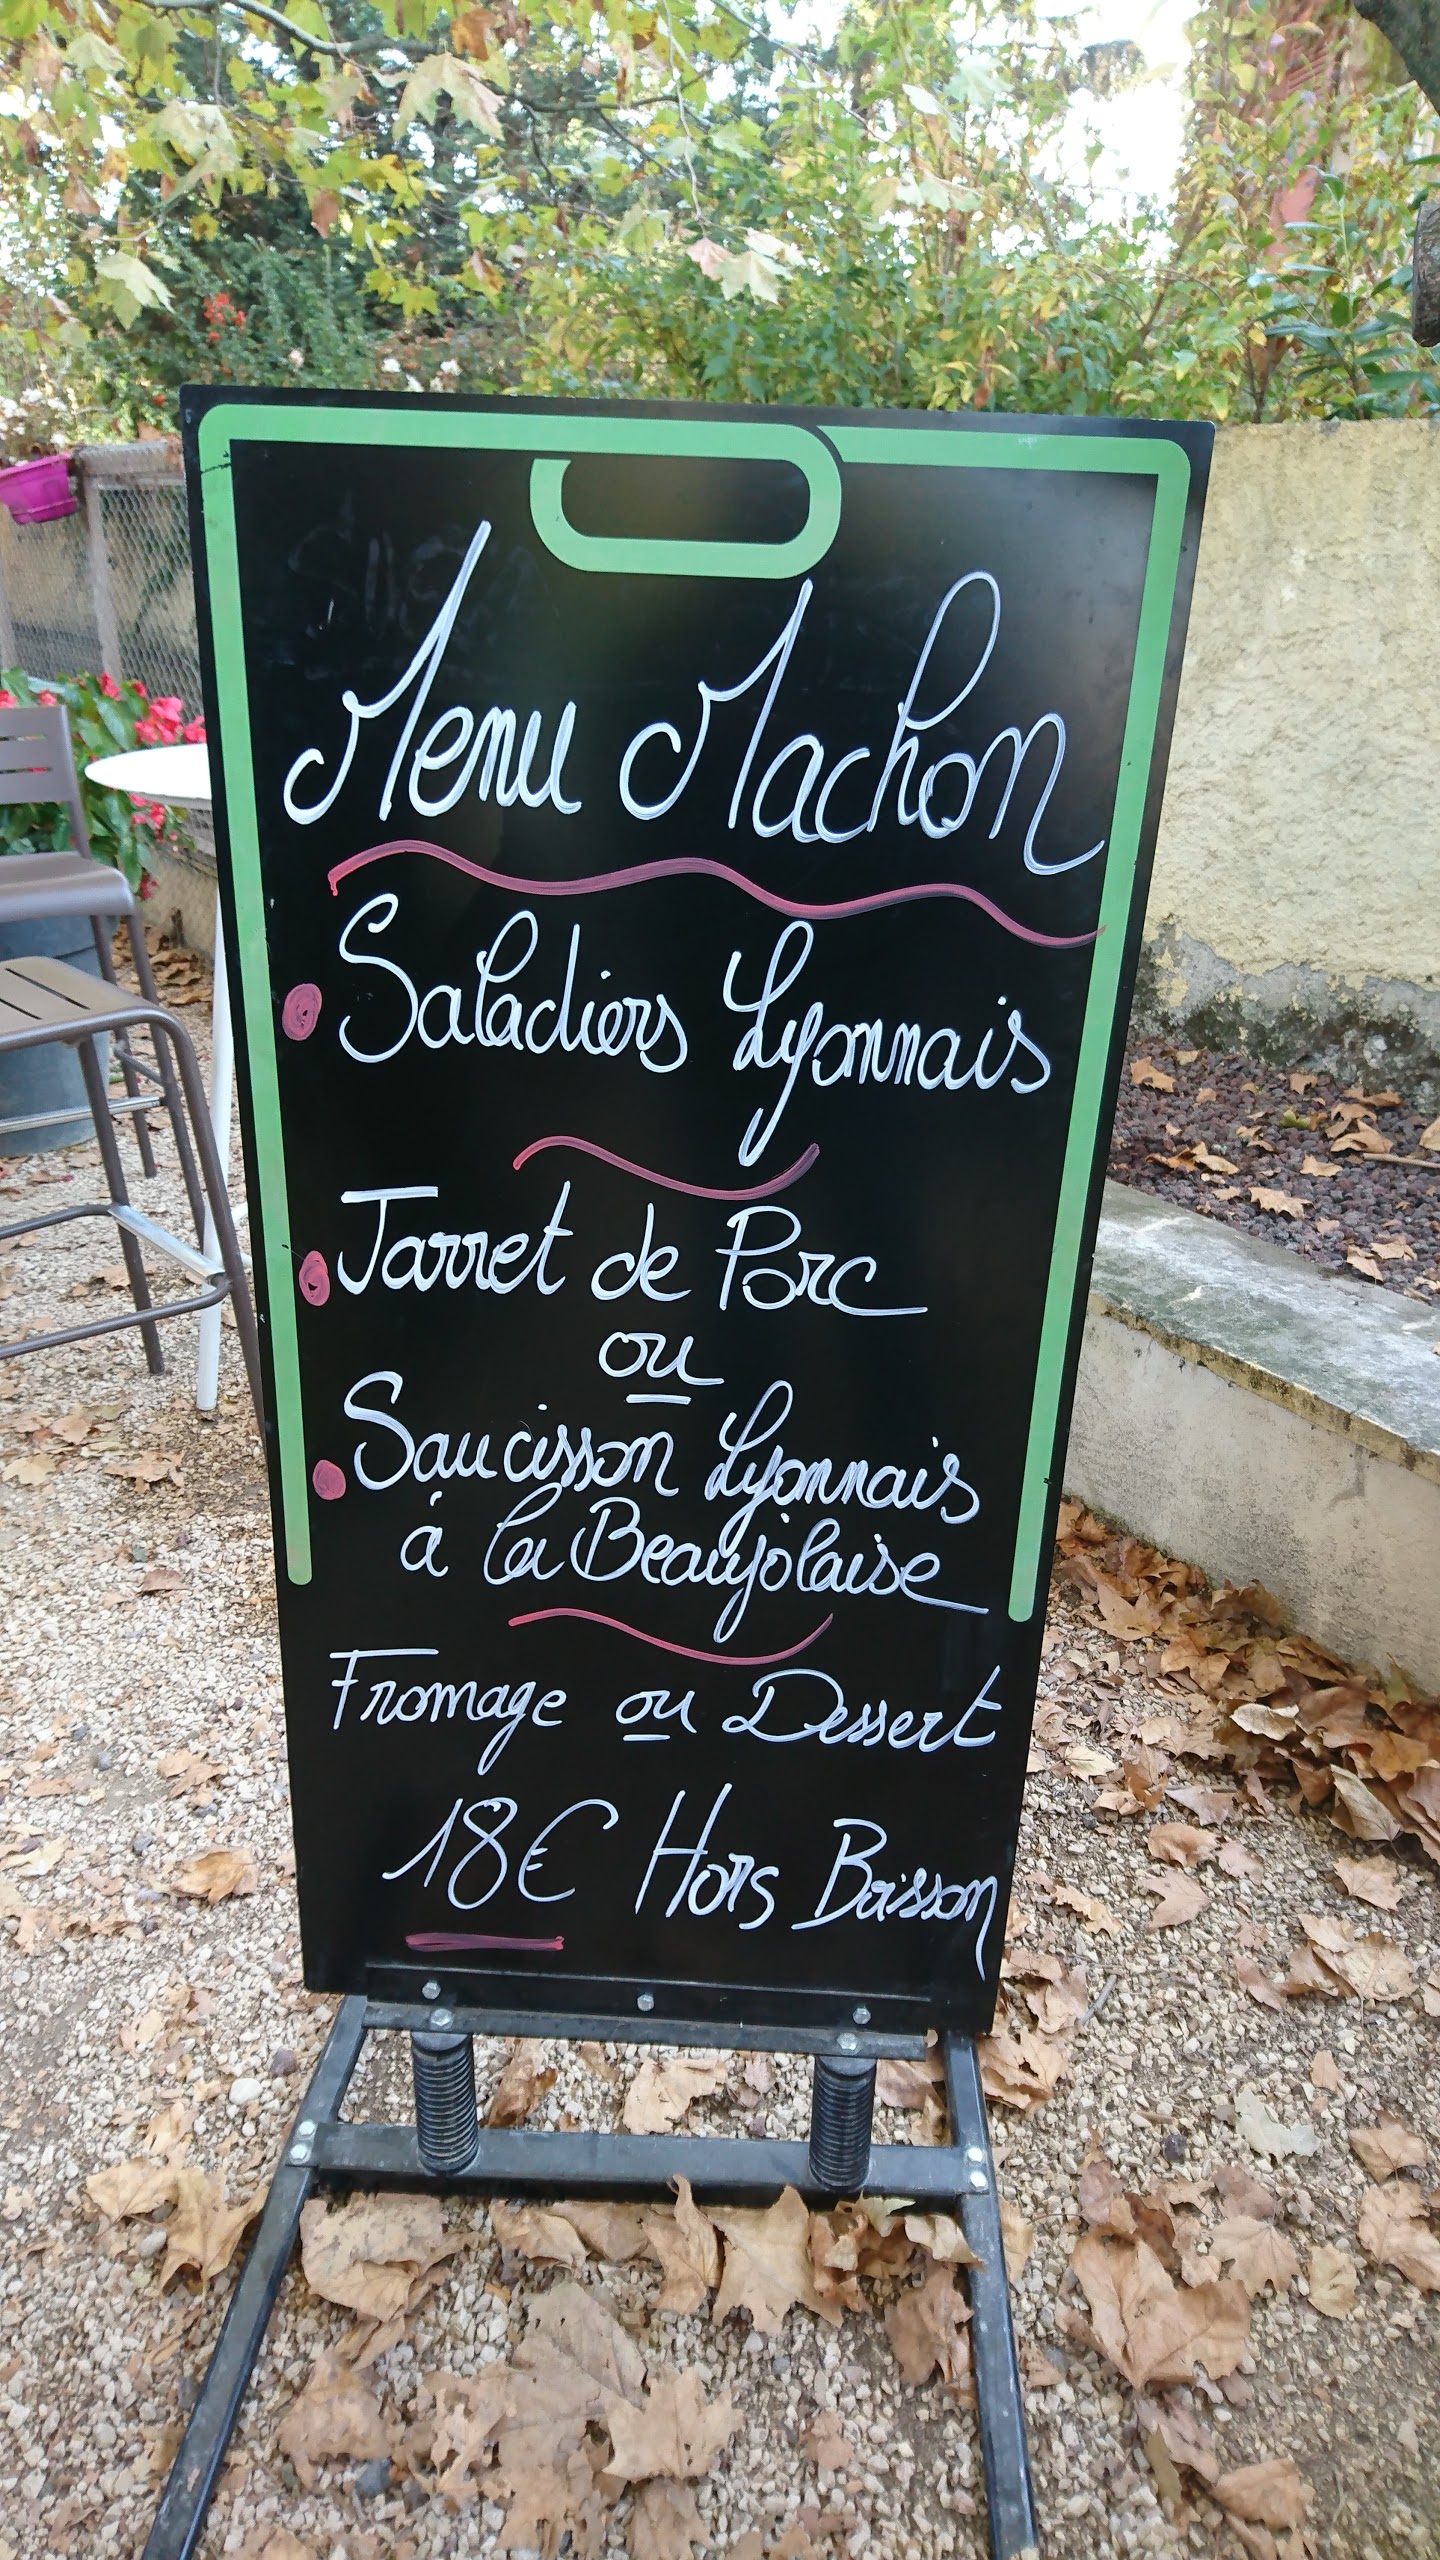 Menu Machon
Saladiers Lyonnais
Jarret de Porc
ou
Saucisson Lyonnais
à la Beaujolaise
Fromage ou Dessert
18€ Hors Boisson